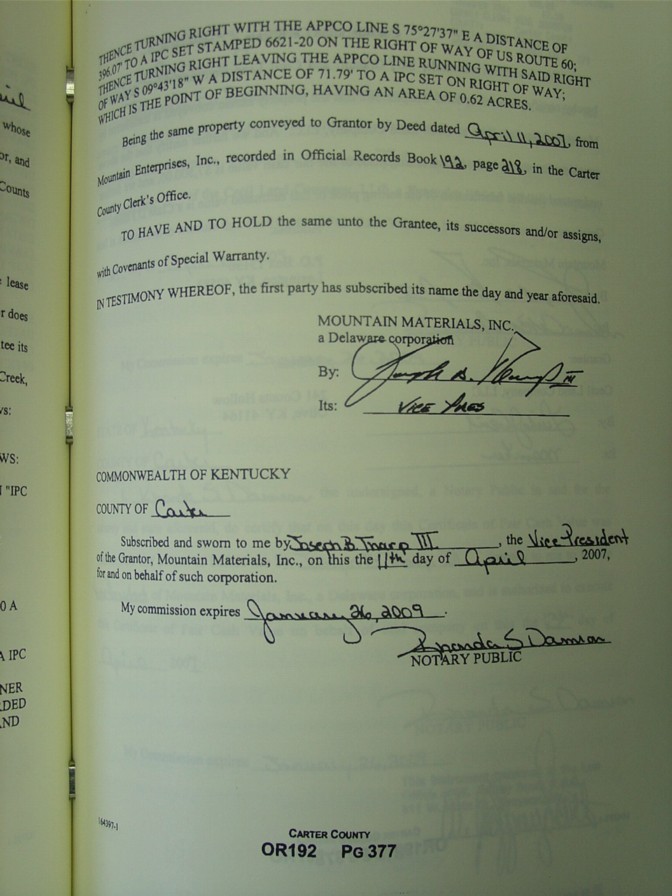 THENCE TURNING RIGHT WITH THE APPCO LINE S 75°27'37" E A DISTANCE OF
396.07' TO A IPC SET STAMPED 6621-20 ON THE RIGHT OF WAY OF US ROUTE 60;
THENCE TURNING RIGHT LEAVING THE APPCO LINE RUNNING WITH SAID RIGHT
OF WAY S 09°43'18" W A DISTANCE OF 71.79' TO A IPC SET ON RIGHT OF WAY;
WHICH IS THE POINT OF BEGINNING, HAVING AN AREA OF 0.62 ACRES.
Being the same property conveyed to Grantor by Deed dated April 11, 2007, from
Mountain Enterprises, Inc., recorded in Official Records Book 192, page 218, in the Carter
County Clerk's Office.
TO HAVE AND TO HOLD the same unto the Grantee, its successors and/or assigns,
with Covenants of Special Warranty.
IN TESTIMONY WHEREOF, the first party has subscribed its name the day and year aforesaid.
MOUNTAIN MATERIALS, INC.
a Delaware corporation
By: Joseph B. Tharp III
Its: VICE PRES
COMMONWEALTH OF KENTUCKY
COUNTY OF Carter
Subscribed and sworn to me by Joseph B. Tharp III, the Vice President
of the Grantor, Mountain Materials, Inc., on this the 11th day of April, 2007,
for and on behalf of such corporation.
My commission expires January 26, 2009.
S Damron
NOTARY PUBLIC
164397-1
CARTER COUNTY
OR192 PG 377
whose
or, and
Counts
lease
r does
tee its
Creek,
vs:
WS:
"IPC
0 A
A IPC
NER
DED
AND